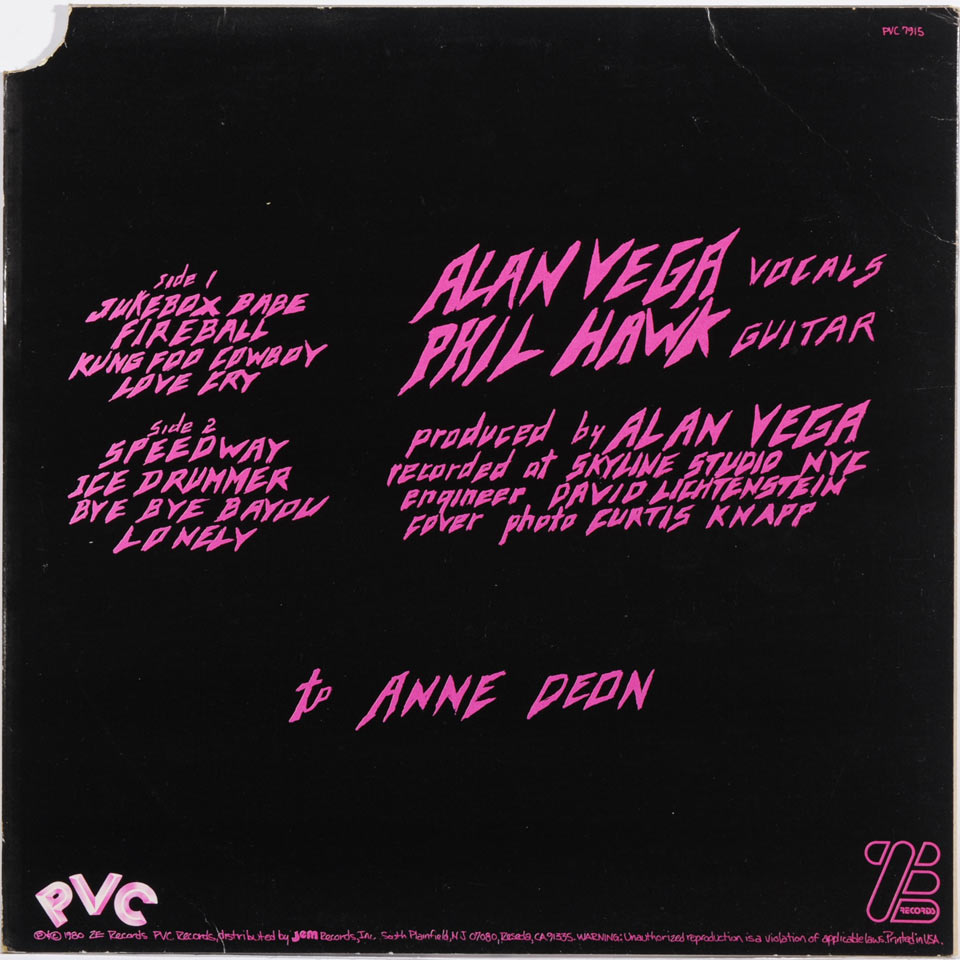 PVC 7915
side 1
JUKEBOX BABE
FIREBALL
KUNG FOO COWBOY
LOVE CRY
side 2
SPEEDWAY
ICE DRUMMER
BYE BYE BAYOU
LONELY
ALAN VEGA VOCALS
PHIL HAWK GUITAR
produced by ALAN VEGA
recorded at SKYLINE STUDIO NYC
engineer DAVID LICHTENSTEIN
cover photo CURTIS KNAPP
to ANNE DEON
PVC
RECORDS
℗&© 1980 ZE Records. PVC Records, distributed by Jem Records, Inc. South Plainfield, NJ 07080, Reseda, CA 91335. WARNING: Unauthorized reproduction is a violation of applicable laws. Printed in USA.